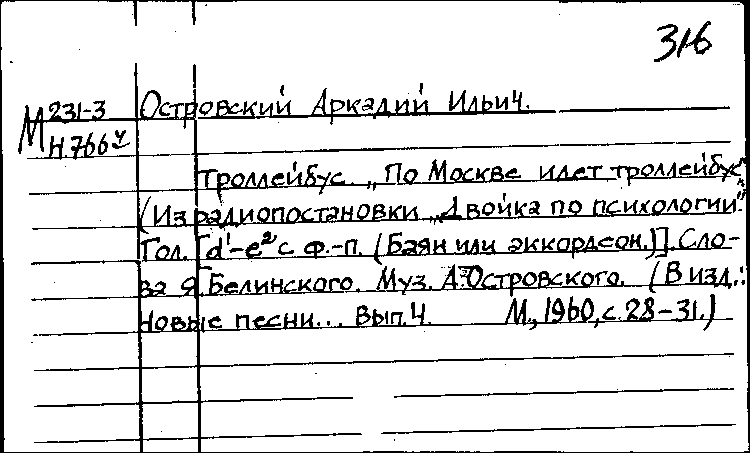 316
М 231-3 Островский Аркадий Ильич.
Н766ч
Троллейбус. „По Москве идет троллейбус..."
(Из радиопостановки „Двойка по психологии".
Гол. [d¹-e² с ф.-п. (Баян или аккордеон.)]. Сло-
ва Я. Белинского. Муз. А. Островского. (В изд.:
Новые песни... Вып. 4. М., 1960, с. 28-31.)